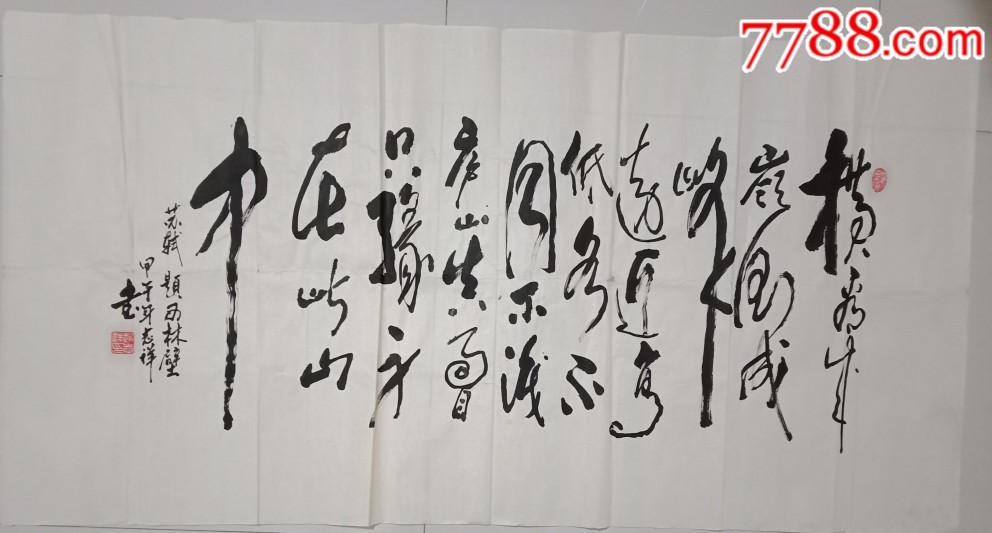 7788.com
横看成
嶺側成
峰
遠近高
低各不
同不識
庐山真面目
只緣身
在此山
中
苏轼 題西林壁
甲午年志祥
书